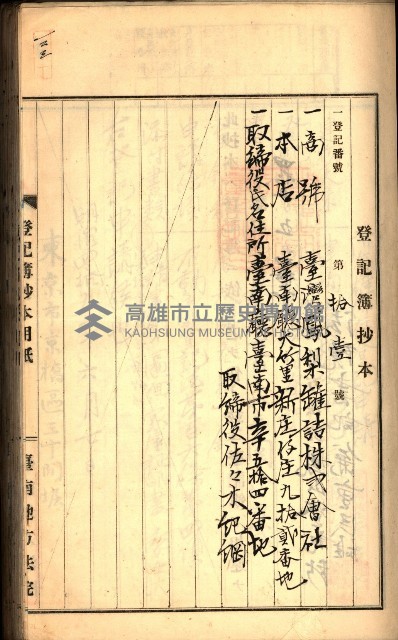 登記簿抄本
一登記番號　第拾壹號
一商號　臺灣鳳梨罐詰株式會社
一本店　臺南廳大竹里新庄仔庄九拾貳番地
一取締役氏名住所　臺南廳臺南市五百五拾四番地
取締役佐々木紀綱
登記簿抄本用紙
臺南地方法院
高雄市立歷史博物館
KAOHSIUNG MUSEUM OF HISTORY